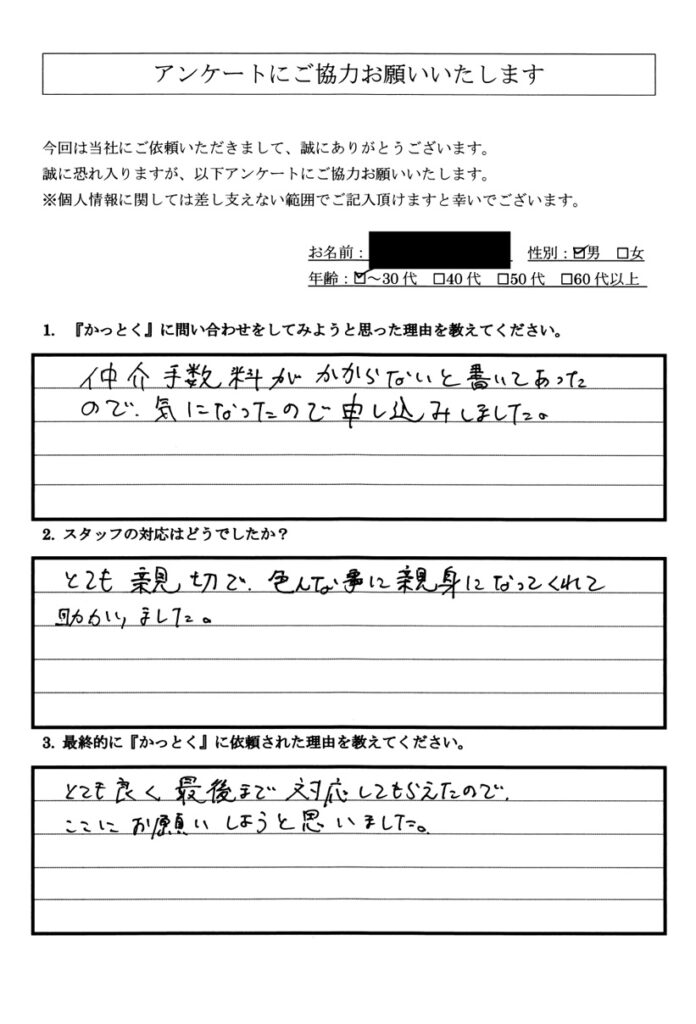 アンケートにご協力お願いいたします
今回は当社にご依頼いただきまして、誠にありがとうございます。
誠に恐れ入りますが、以下アンケートにご協力お願いいたします。
※個人情報に関しては差し支えない範囲でご記入頂けますと幸いでございます。
お名前： 性別：☑男 □女
年齢：☑～30代 □40代 □50代 □60代以上
1. 『かっとく』に問い合わせをしてみようと思った理由を教えてください。
仲介手数料がかからないと書いてあった
ので、気になったので申し込みしました。
2. スタッフの対応はどうでしたか？
とても親切で、色んな事に親身になってくれて
助かりました。
3. 最終的に『かっとく』に依頼された理由を教えてください。
とても良く最後まで対応してもらえたので、
ここにお願いしようと思いました。